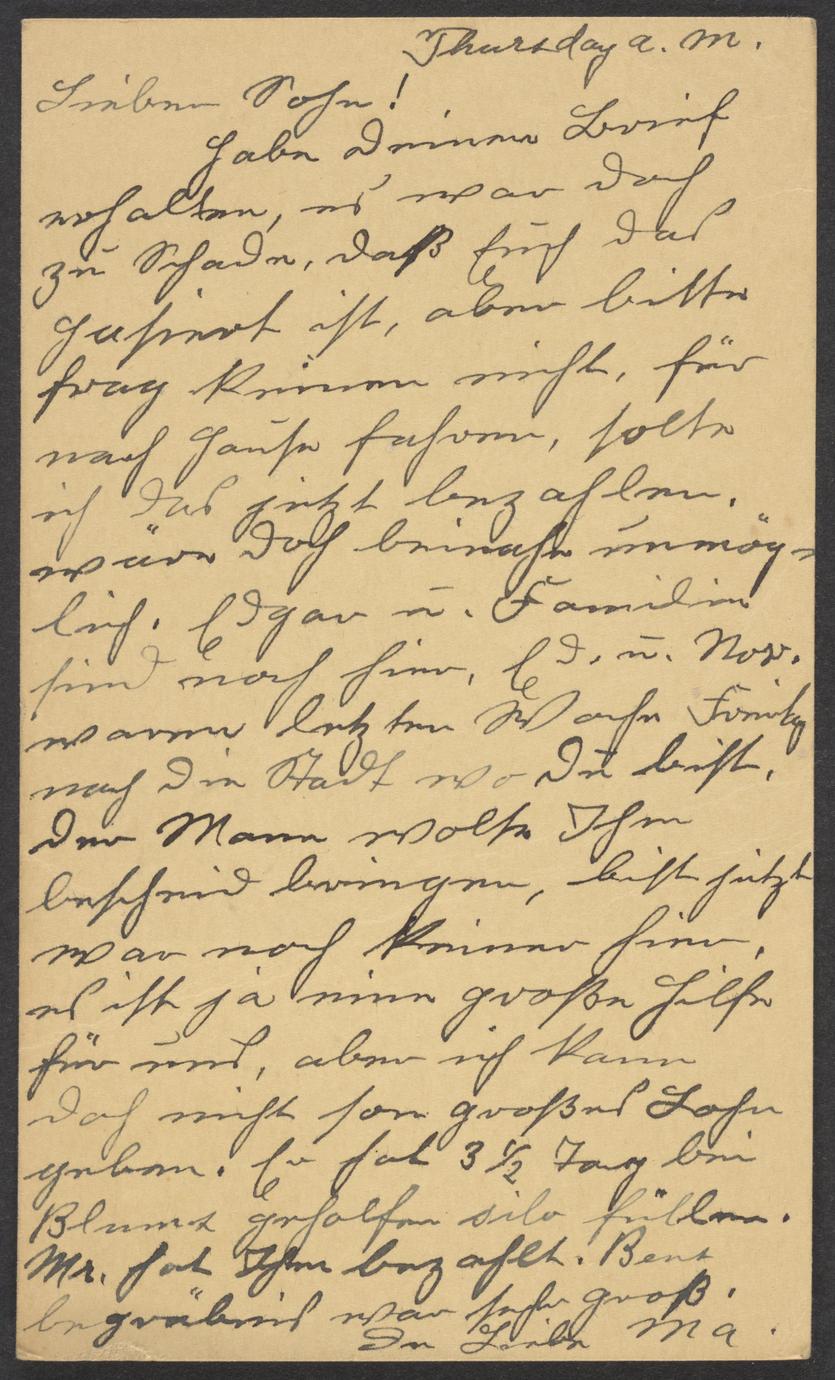 Thursday a. m.
Lieber Sohn!
Habe Deinen Brief
erhalten, es war doch
zu Schade, daß Euch das
passiert ist, aber bitte
frag keinen nicht, für
nach Hause fahren, solte
ich das jetzt bezahlen.
wäre doch beinahe unmög-
lich. Edgar u. Familie
sind noch hier, Ed. u. Nor.
waren letzten Woche Freitag
nach die Stadt wo Du bist,
der Mann wolte Ihm
bescheid bringen, bist jetzt
war noch keiner hier,
es ist ja eine große Hilfe
für uns, aber ich kann
doch nicht son großes Lohn
geben. Er hat 3 1/2 Tag bei
Blums geholfen silo füllen.
Mr. hat Ihm bezahlt. Bens
begräbnis war sehr groß.
In Liebe Ma.